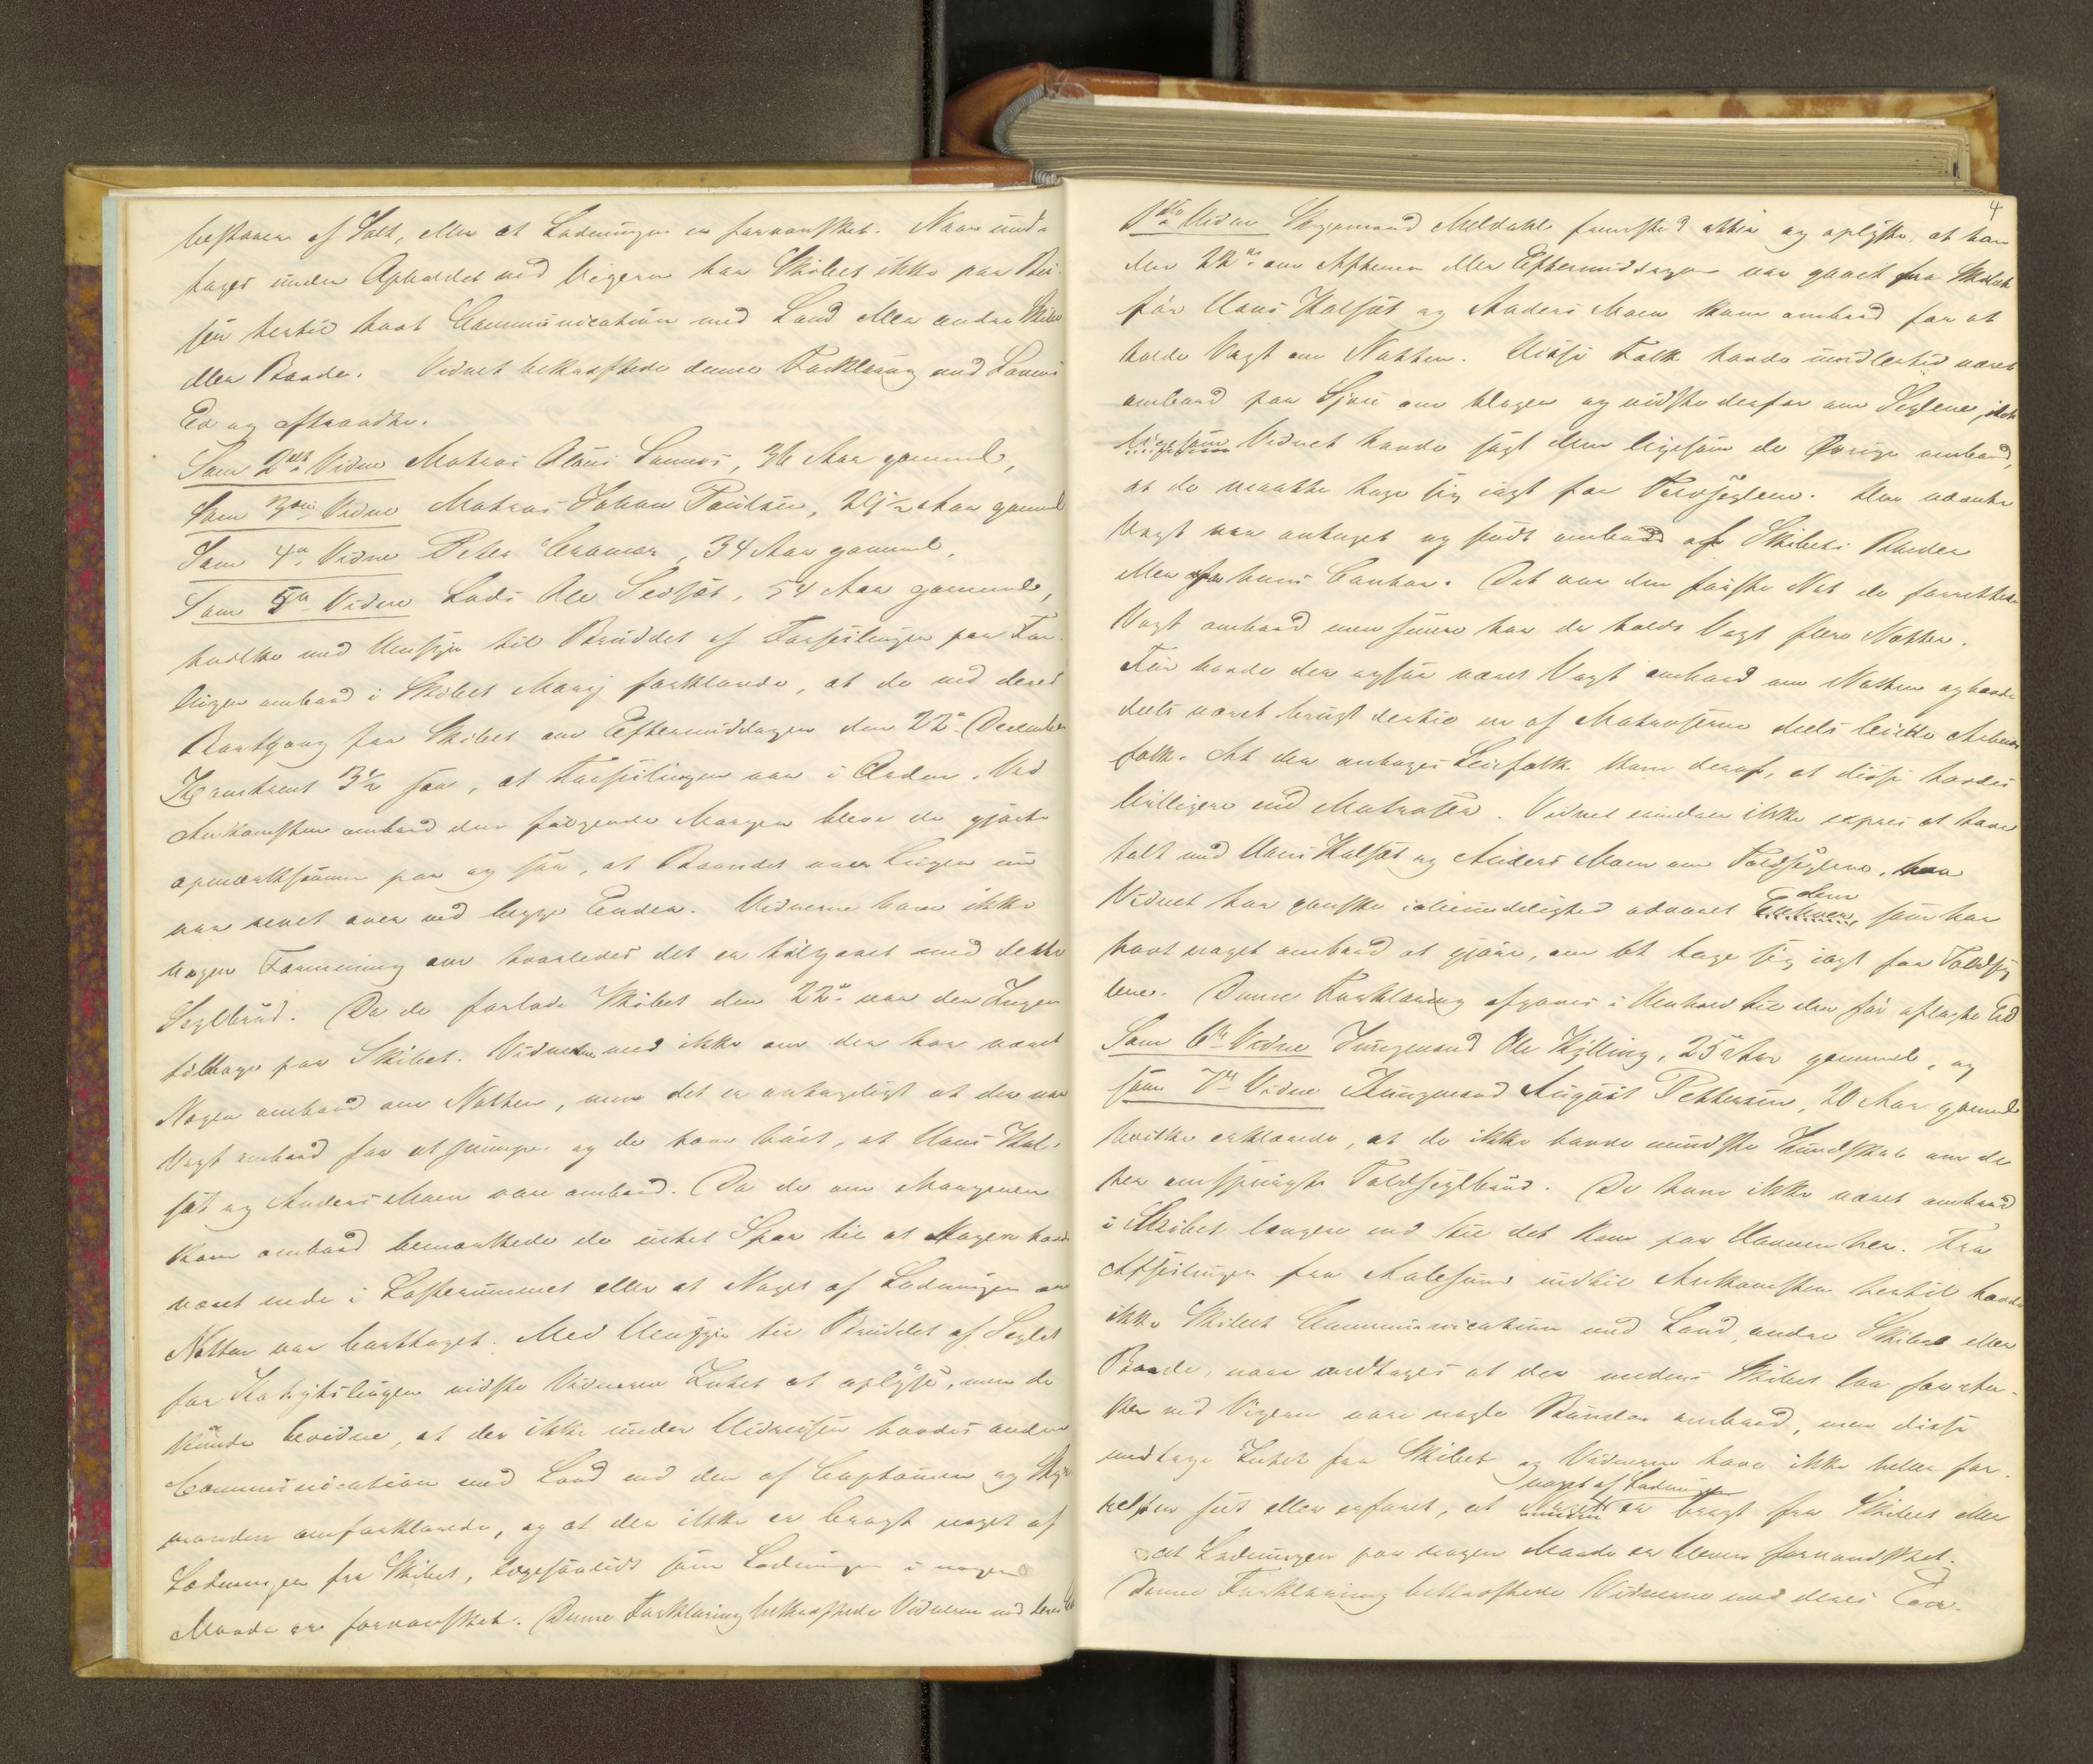 bestaaer af Salt, eller at Ladningen er forvansket. Naar und-
tages under Opholdet ved Vigeren har Skibet ikke paa Rei-
sen hertil havt Communication med Land eller andre Skibe
eller Baade. Vidnet bekræftede denne Forklaring med Lovens
Ed og aftraadte.
Som 2det Vidne Matros Claus Sannæs, 36 Aar gammel,
Som 3die Vidne Matros Johan Paulsen, 29½ Aar gammel
Som 4de Vidne Peter Cramer, 34 Aar gammel,
Som 5te Vidne Lods Ole Sedsæt, 54 Aar gammel,
hvilke med Hensyn til Bruddet af Forseilingen paa For-
lugen ombord i Skibet Mary forklarede, at de ved deres
Bortgang fra Skibet om Eftermiddagen den 22de December
Kl omtrent 3½ saae, at Forseilingen var i Orden. Ved
Ankomsten ombord den følgende Morgen bleve de gjort
opmærksomme paa og saae, at Baandet over Lugen nu
var revet over ved begge Ender. Vidnerne have ikke
nogen Formening om hvorledes det er tilgaaet med dette
Seglbrud. Da de forlode Skibet den 22de var der Ingen
tilbage paa Skibet. Vidnerne ved ikke om der har været
Nogen ombord om Natten, men det er antageligt at der var
Vagt ombord for at pumpe og de have hørt, at Hans Hal-
sæt og Anders Moen vare ombord. Da de om Morgenen
kom ombord bemærkede de intet Spor til at Nogen havde
været nede i Lasterummet eller at Noget af Ladningen om
Natten var borttaget. Med Hensyn til Bruddet af Seglet
for Kahytslugen vidste Vidnerne Intet at oplyse, men de
kunde bevidne, at der ikke under Udreisen havdes anden
Communication med Land end den af Captainen og Styr-
manden omforklarede, og at der ikke er bragt noget af
Ladningen fra Skibet, ligesaalidt som Ladningen i nogen
Maade er forvansket. Denne Forklaring bekræftede Vidnerne med deres Ed
4
1ste Vidne Styrmand Meldahl fremstod atter og oplyste, at han
den 22de om Aftenen eller Eftermiddagen var gaaet fra Skibet
før Hans Halsæt og Anders Moen kom ombord for at
holde Vagt om Natten. Disse Folk havde imidlertid været
ombord paa Sjøen om Dagen og vidste derfor om Seglene, idet
ligesom Vidnet havde sagt dem ligesom de Øvrige ombord,
at de maatte tage sig iagt for Toldseglene. Den nævnte
Vagt var antaget og sendt ombord af Skibets Rheder
eller fra hans Contor. Det var den første Nat de forrettede
Vagt ombord men senere har de holdt Vagt flere Nætter.
Før havde der ogsaa været Vagt ombord om Natten og havde
deels været brugt dertil en af Matroserne deels leiede Arbeids-
folk. At der antages Leiefolk kom deraf, at disse havdes
billigere end Matroser. Vidnet erindrer ikke expres at have
talt med Hans Halsæt og Anders Moen om Toldseglene, men
Vidnet har ganske i Almindelighed advaret Enhver dem som har
havt noget ombord at gjøre, om at tage sig iagt for Toldseg-
lene. Denne Forklaring afgaves i Henhold til den før aflagte Ed
Som 6te Vidne Jungmand Ole Kylling, 25 Aar gammel, og
som 7de Vidne Jungmand August Pettersen, 20 Aar gammel
hvilke erklærede, at de ikke havde mindste Kundskab om de
her omspurgte Toldseglbrud. De have ikke været ombord
i Skibet længere end til det kom paa Havnen her. Fra
Afseilingen fra Aalesund indtil Ankomsten hertil havde
ikke Skibet Communication med Land, andre Skibe eller
Baade, naar undtages at der medens Skibet laa for An-
ker ved Vigeren vare nogle Bønder ombord, men disse
medtoge Intet fra Skibet og Vidnerne have ikke heller for-
resten seet eller erfaret, at noget af Ladningen er bragt fra Skibet eller
at Ladningen paa nogen Maade er bleven forvansket.
Denne Forklaring bekræftede Vidnerne med deres Eed.